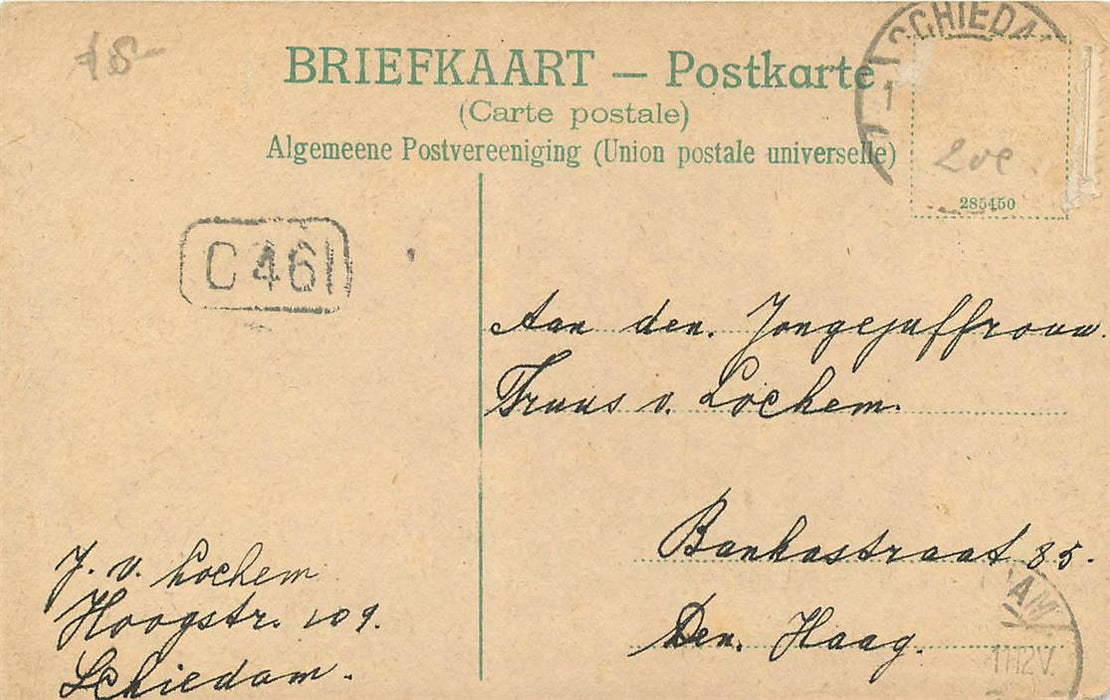 18-
BRIEFKAART — Postkarte
(Carte postale)
Algemeene Postvereeniging (Union postale universelle)
SCHIEDA
1
20c
285450
C461
Aan den. Jongejuffrouw.
Truus v. Lochem.
Bankastraat 85.
Den. Haag.
J. v. Lochem
Hoogstr. 109.
Schiedam.
AM
1112V.